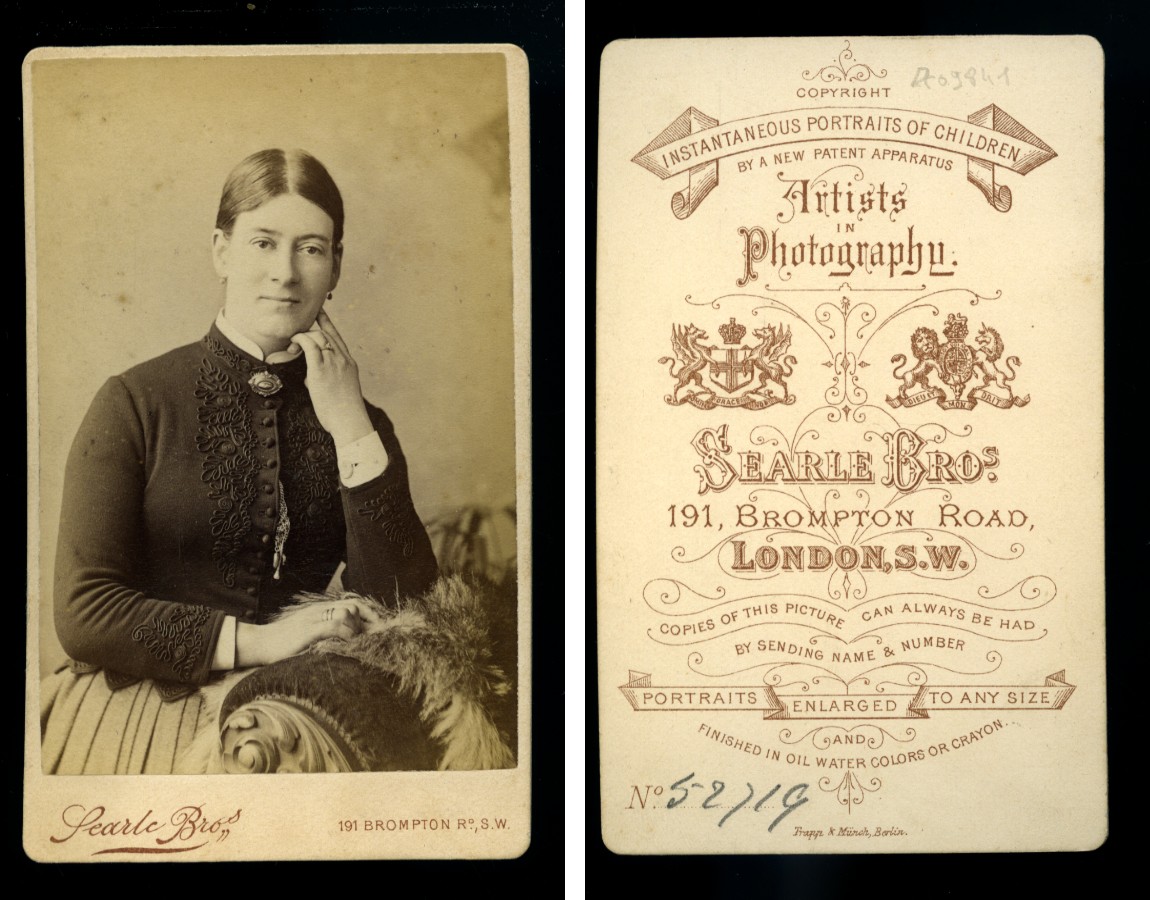 Searle Bros
191 BROMPTON RD, S.W.
COPYRIGHT
INSTANTANEOUS PORTRAITS OF CHILDREN
BY A NEW PATENT APPARATUS
Artists
IN
Photography.
DIEU ET MON DROIT
SEARLE BROS.
191, BROMPTON ROAD,
LONDON, S.W.
COPIES OF THIS PICTURE CAN ALWAYS BE HAD
BY SENDING NAME & NUMBER
PORTRAITS ENLARGED TO ANY SIZE
AND
FINISHED IN OIL WATER COLORS OR CRAYON...
No 52719
Trapp & Münch, Berlin.